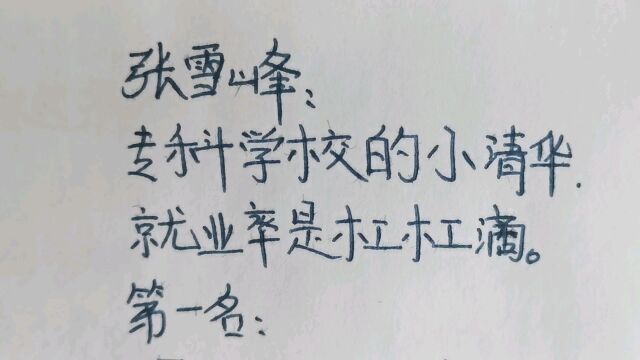 张雪峰:
专科学校的小清华.
就业率是杠杠滴。
第一名: